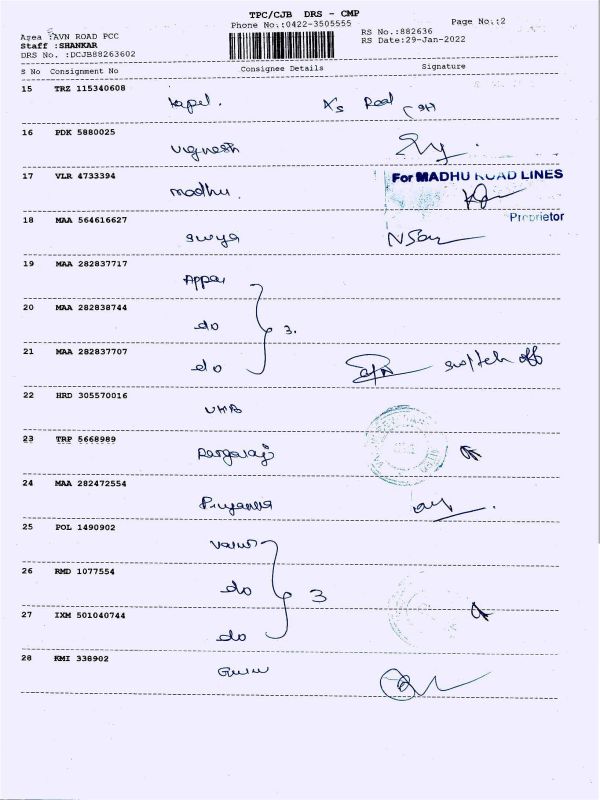 TPC/CJB DRS - CMP
Phone No.:0422-3505555 Page No.:2
Area :AVN ROAD PCC RS No.:882636
Staff :SHANKAR RS Date:29-Jan-2022
DRS No. :DCJB88263602
S No Consignment No Consignee Details Signature
15 TRZ 115340608
16 PDK 5880025
Vignesh
17 VLR 4733394
madhu.
For MADHU ROAD LINES
Proprietor
18 MAA 564616627
Surya
19 MAA 282837717
20 MAA 282838744
do 3.
21 MAA 282837707
do switch off
22 HRD 305570016
23 TRP 5668989
24 MAA 282472554
Priyanka
25 POL 1490902
26 RMD 1077554
do 3
27 IXM 501040744
do
28 KMI 338902
Guru